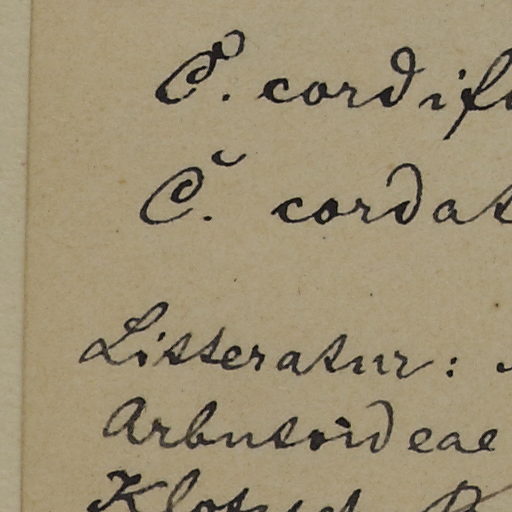 C. cordif
C. cordat
Litteratur:
Arbutoideae
Klotzsch